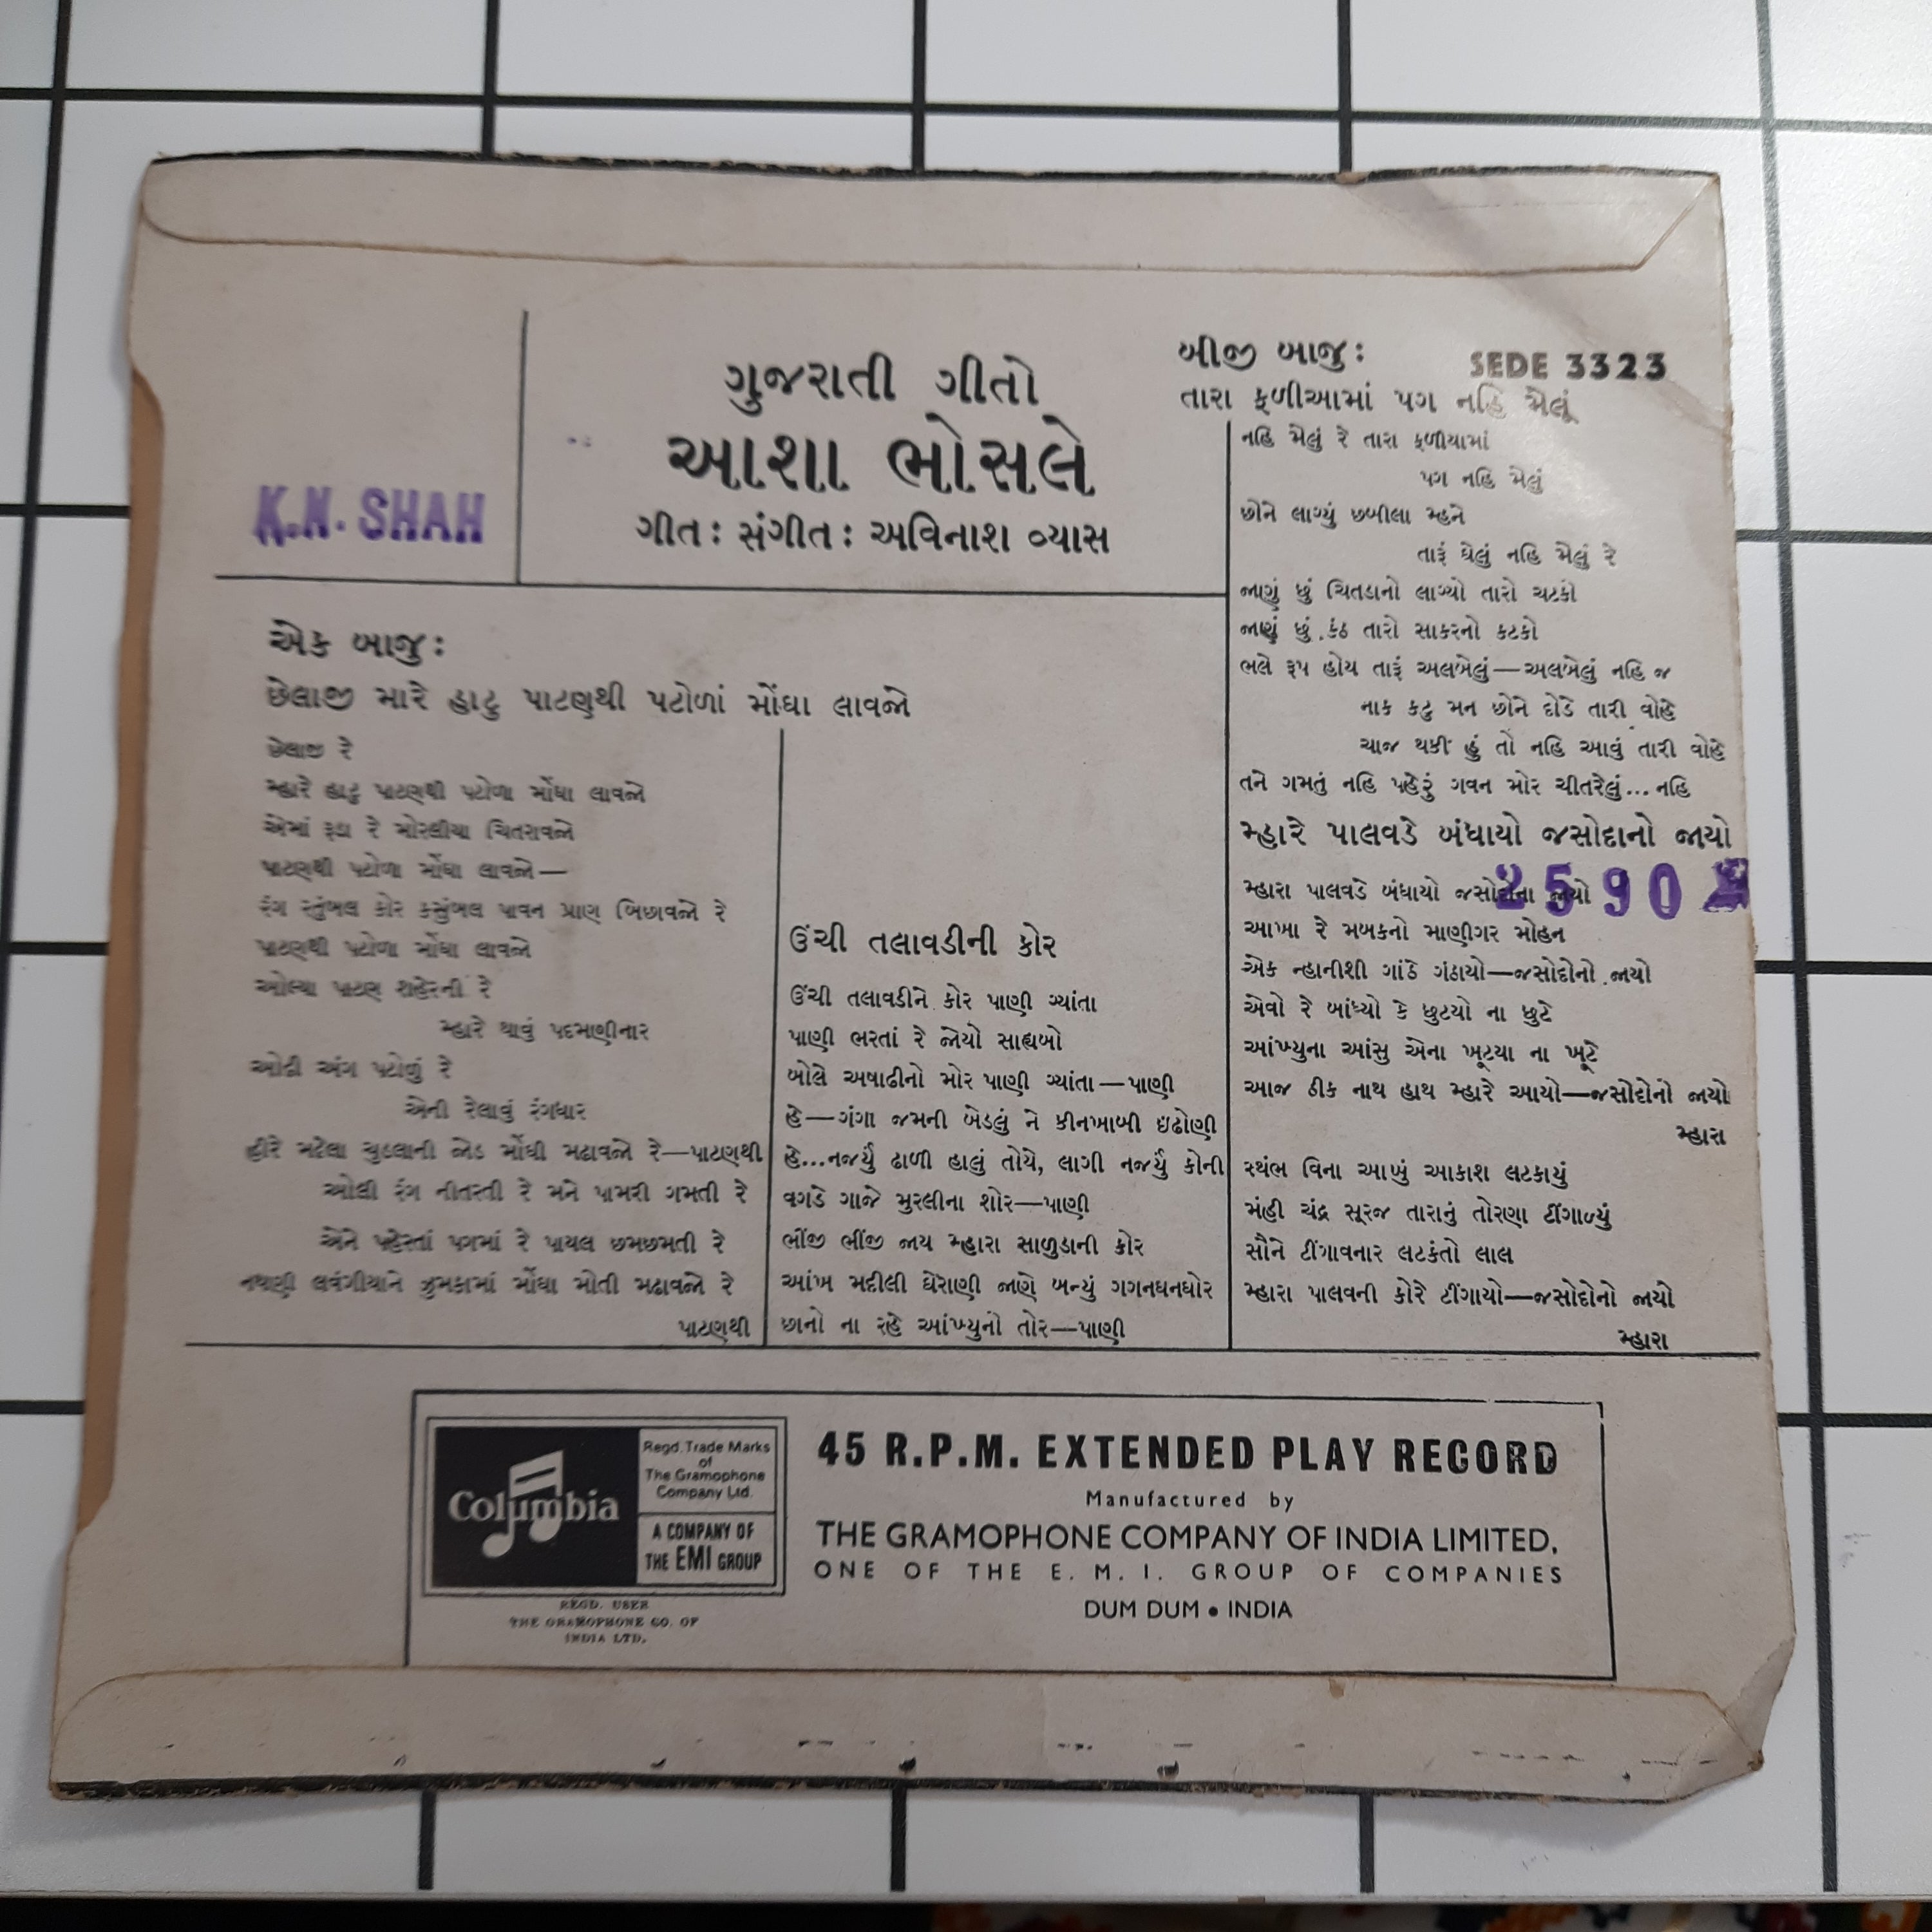 K.N. SHAH
ગુજરાતી ગીતો
આશા ભોસલે
ગીત : સંગીત : અવિનાશ વ્યાસ
એક બાજુ :
છેલાજી મારે હાટુ પાટણથી પટોળાં મોંઘા લાવજો
છેલાજી રે
મ્હારે હાટુ પાટણથી પટોળા મોંઘા લાવજો
એમાં રૂડા રે મોરલીયા ચિતરાવજો
પાટણથી પટોળા મોંઘા લાવજો—
રંગ રતુંબલ કોર કસુંબલ પાવન પ્રાણ બિછાવજો રે
પાટણથી પટોળા મોંઘા લાવજો
ઓલ્યા પાટણ શહેરની રે
મ્હારે થાવું પદમણીનાર
ઓઢી અંગ પટોળું રે
એની રેલાવું રંગધાર
હીરે મઢેલા ચુડલાની જોડ મોંઘી મઢાવજો રે—પાટણથી
ઓલી રંગ નીતરતી રે મને પામરી ગમતી રે
એને પહેરતાં પગમાં રે પાયલ છમછમતી રે
નથણી લવંગીયાને ઝુમકામાં મોંઘા મોતી મઢાવજો રે
પાટણથી
ઉંચી તલાવડીની કોર
ઉંચી તલાવડીને કોર પાણી ગ્યાંતા
પાણી ભરતાં રે જોયો સાહ્યબો
બોલે અષાઢીનો મોર પાણી ગ્યાંતા—પાણી
હે—ગંગા જમની બેડલું ને કીનખાબી ઇંઢોણી
હે...નજર્યું ઢાળી હાલું તોયે, લાગી નજર્યું કોની
વગડે ગાજે મુરલીના શોર—પાણી
ભીંજી ભીંજી જાય મ્હારા સાળુડાની કોર
આંખ મદીલી ઘેરાણી જાણે બન્યું ગગનઘનઘોર
છાનો ના રહે આંખ્યુનો તોર—પાણી
બીજી બાજુ :
SEDE 3323
તારા ફળીઆમાં પગ નહિ મેલૂં
નહિ મેલું રે તારા ફળીયામાં
પગ નહિ મેલું
છોને લાગ્યું છબીલા મ્હને
તારૂં ઘેલું નહિ મેલું રે
જાણું છું ચિતડાનો લાગ્યો તારો ચટકો
જાણું છું કંઠ તારો સાકરનો કટકો
ભલે રૂપ હોય તારૂં અલબેલું—અલબેલું નહિ જ
નાક કટુ મન છોને દોડે તારી વોહે
ચાજ થકી હું તો નહિ આવું તારી વોહે
તને ગમતું નહિ પહેરું ગવન મોર ચીતરેલું...નહિ
મ્હારે પાલવડે બંધાયો જસોદાનો જાયો
મ્હારા પાલવડે બંધાયો જસોદાના જાયો
2590
આખા રે મલકનો માણીગર મોહન
એક ન્હાનીશી ગાંઠે ગંઠાયો—જસોદોનો જાયો
એવો રે બાંધ્યો કે છુટયો ના છુટે
આંખ્યુના આંસુ એના ખૂટયા ના ખૂટે
આજ ઠીક નાથ હાથ મ્હારે આયો—જસોદોનો જાયો
મ્હારા
સ્થંભ વિના આખું આકાશ લટકાયું
મંહી ચંદ્ર સૂરજ તારાનું તોરણ ટીંગાળ્યું
સૌને ટીંગાવનાર લટકંતો લાલ
મ્હારા પાલવની કોરે ટીંગાયો—જસોદોનો જાયો
મ્હારા
Columbia
Regd. Trade Marks
of
The Gramophone
Company Ltd.
A COMPANY OF
THE EMI GROUP
REGD. USER
THE GRAMOPHONE CO. OF
INDIA LTD.
45 R.P.M. EXTENDED PLAY RECORD
Manufactured by
THE GRAMOPHONE COMPANY OF INDIA LIMITED.
ONE OF THE E. M. I. GROUP OF COMPANIES
DUM DUM • INDIA